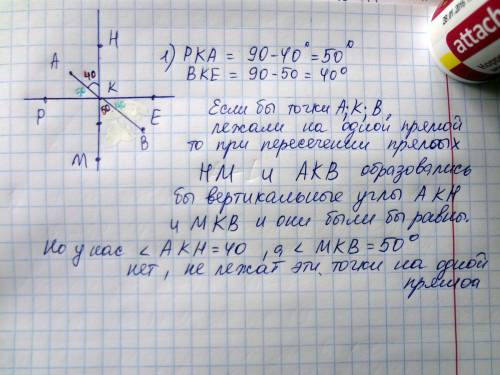 H
A
40
50
K
50
P
E
B
M
1) PKA = 90-40° = 50°
BKE = 90-50 = 40°
Если бы точки A; K; B,
лежали на одной прямой
то при пересечении прямых
HM и AKB образовались
бы вертикальные углы AKH
и MKB и они были бы равны.
Но у нас < AKH = 40, а < MKB = 50°
нет, не лежат эти точки на одной
прямоа
attach